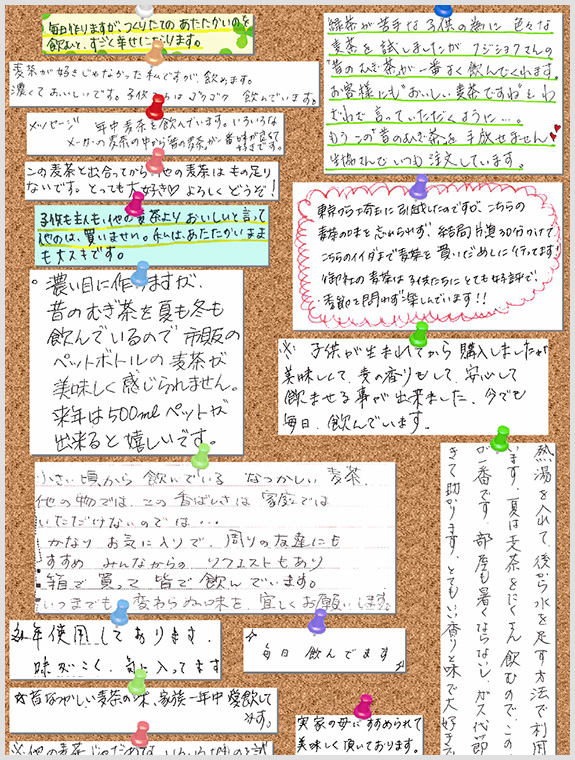 毎日作りますが、つくりたての あたたかいのを
飲むと、すごと幸せになります。
麦茶が好きじゃなかった私ですが、飲めます。
濃くておいしいです。子供たちは ゴクゴク 飲んでいます。
メッセージ 年中麦茶を飲んでいます。いろいろな
メーカーの麦茶の中から昔の麦茶が一番味が良くて
好きです。
この麦茶と出会ってから他の麦茶はもの足り
ないです。とっても大好き♡ よろしくどうぞ!
子供も主人も、他の麦茶より おいしいと言って
他のは、買いません。私は、あたたかいまま
も大スキです。
。濃い目に作ますが、
昔のむぎ茶を夏も冬も
飲んでいるので 市販の
ペットボトルの麦茶が
美味しく感じられません。
来年は500mlペットが
出来ると嬉しいです。
小さい頃から 飲んでいる なつかしい 麦茶.
他の物では、この香ばしさは 家庭では
いただけないのでは…
かなり お気に入りで、周りの友達にも
すすめ みんなからの リクエストもあり
箱で買って 皆で飲んでいます。
いつまでも、変わらぬ味を、宜しくお願いします。
毎年使用しております.
味がこく、気に入ってます
☆昔なつかしい麦茶の味、家族一年中愛飲して
ます。
※他の麦茶
緑茶が苦手な子供の為に 色々な
麦茶を試しましたが フジショクさんの
"昔のむぎ茶"が一番よく飲んでくれます。
お客様にも"おいしい麦茶ですね"とわ
ざわざ言っていただくように…。
もうこの"昔のむぎ茶"を手放せません
生協さんでいつも注文しています。
東京から埼玉に引越したのですが、こちらの
麦茶の味を忘れられず 結局片道30分かけて
こちらのイイダまで麦茶を買いだめしに行ってます!
御社の麦茶は子供たちにとても好評で、
季節を問わず楽しんでいます!!
※ 子供が生まれてから購入しましたが
美味しくて、麦の香りもして、安心して
飲ませる事が出来ました。今でも
毎日、飲んでいます。
熱湯を入れて、後から水を足す方法で利用
います。夏は麦茶をたくさん飲むので、この
が一番です。部屋も暑くならないし、ガス代が節
きて助かります。とてもいい香りと味で大好きで
毎日 飲んでます
実家の母にすすめられて
美味しく頂いております。